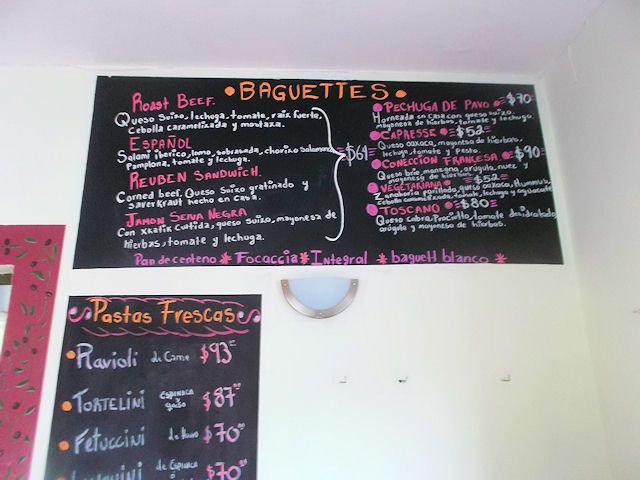 BAGUETTES
ROAST BEEF.
Queso Suizo, lechuga, tomate, raíz fuerte,
Cebolla caramelizada y mostaza.
ESPAÑOL
Salami iberico, lomo, sobrasada, chorizo
Pamplona, tomate y lechuga.
REUBEN SANDWICH.
Corned beef. Queso Suizo gratinado y
Sauerkraut hecho en casa.
JAMON SELVA NEGRA
Con Xkatik Curtida, queso suizo, mayonesa de
hierbas, tomate y lechuga.
$69
PECHUGA DE PAVO $70
Horneada en casa con queso suizo,
mayonesa de hierbas, tomate y lechuga.
CAPRESSE $52
Queso oaxaca, mayonesa de hierbas,
lechuga, tomate y Pesto.
CONECCION FRANCESA $90
Queso brie, manzana, arúgula, nuez y
mayonesa de hierbas.
VEGETARIANA $52
Zanahoria parillada, queso oaxaca, Hummus,
Cebolla caramelizada, tomate, lechuga y aguacate
TOSCANO $80
Queso Cabra, Prociutto, tomate deshidratado,
arúgula y mayonesa de hierbas.
Pan de centeno * Focaccia * Integral * baguett blanco *
Pastas Frescas
Ravioli de Carne $93
TORTELINI ESPINACA y queso $87
Fetuccini de Huevo $70
de Espinaca $70